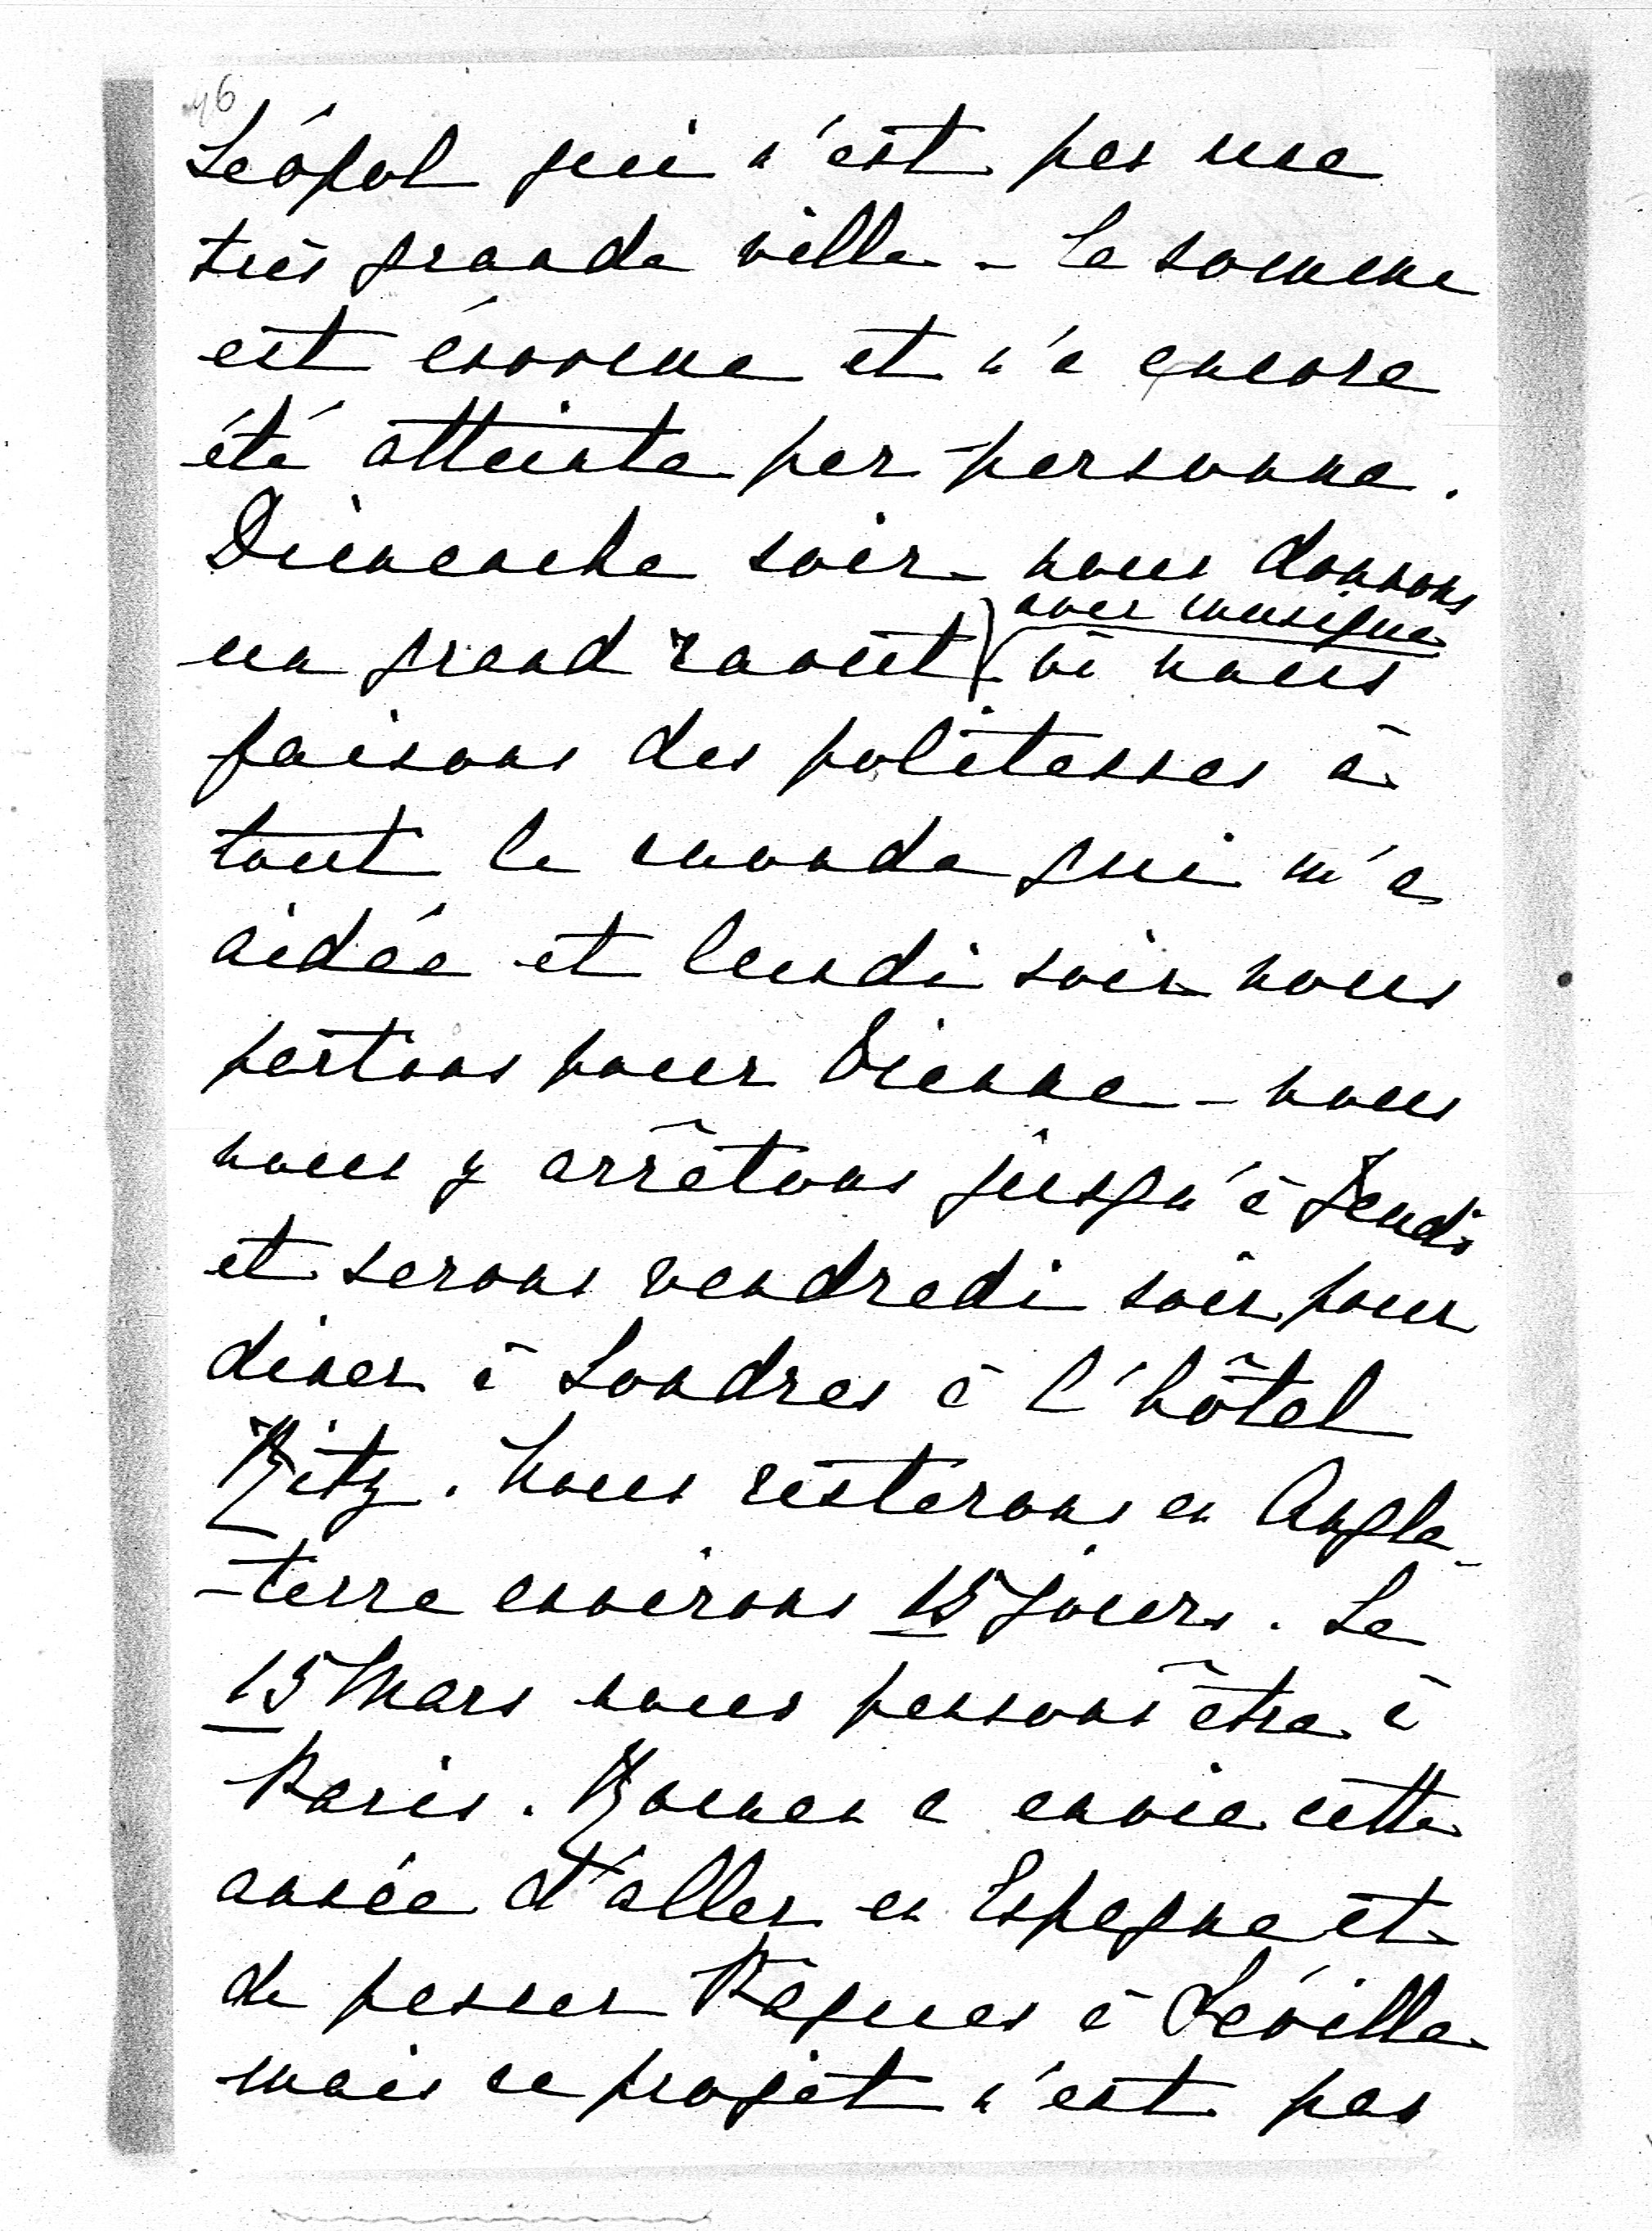 46
Léopol qui n'est pas une
très grande ville - La somme
est énorme et n'a encore
été atteinte par personne.
Dimanche soir nous donnons
avec musique
un grand raout où nous
faisons des politesses à
tout le monde qui m'a
aidée et lundi soir nous
partons pour Vienne - nous
nous y arrêtons jusqu'à Jeudi
et serons vendredi soir pour
diner à Londres à l'hôtel
Ritz. Nous resterons en Angle-
-terre environs 15 Jours. Le
15 Mars nous pensons être à
Paris. Roman a envie cette
année d'aller en Espagne et
de passer Pâques à Séville
mais ce projet n'est pas